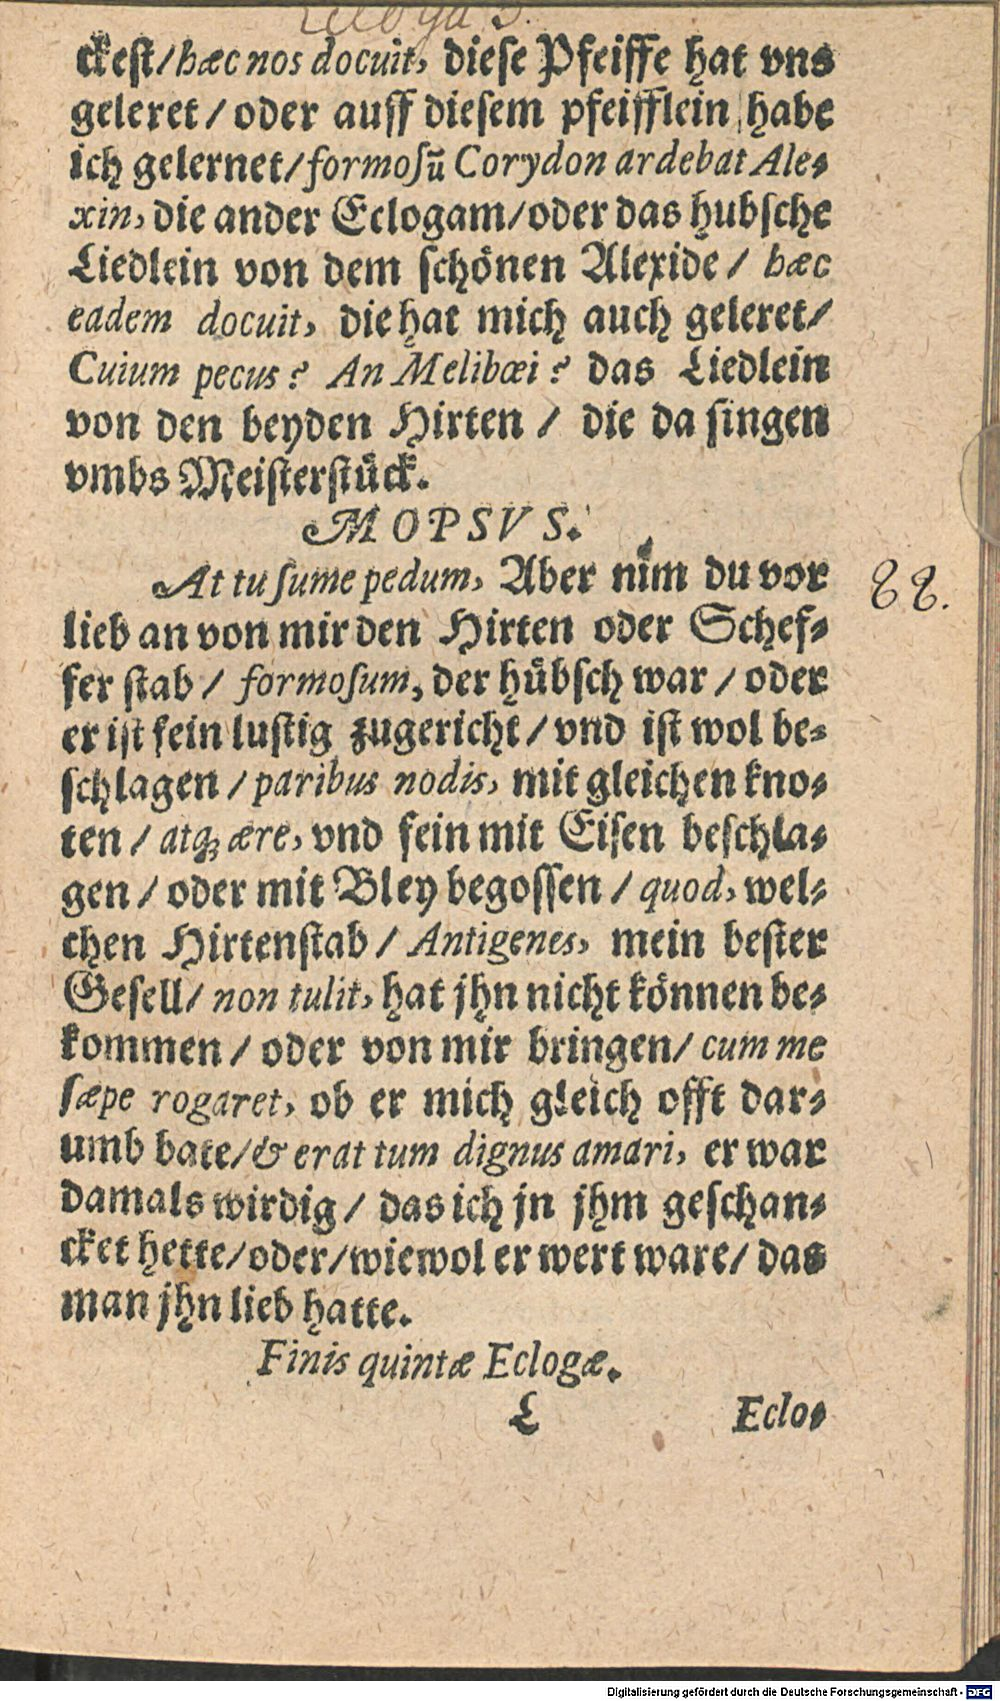 Ecloga 5.
ckest/hæc nos docuit, diese Pfeiffe hat vns
geleret/oder auff diesem pfeifflein habe
ich gelernet/formosũ Corydon ardebat Ale-
xin, die ander Eclogam/oder das hubsche
Liedlein von dem schönen Alexide/ hæc
eadem docuit, die hat mich auch geleret/
Cuium pecus? An Melibœi? das Liedlein
von den beyden Hirten / die da singen
vmbs Meisterstück.
MOPSVS.
At tu sume pedum, Aber nim du vor
88.
lieb an von mir den Hirten oder Schef-
fer stab / formosum, der hübsch war / oder
er ist fein lustig zugericht / vnd ist wol be-
schlagen / paribus nodis, mit gleichen kno-
ten / atq; ære, vnd fein mit Eisen beschla-
gen / oder mit Bley begossen / quod, wel-
chen Hirtenstab / Antigenes, mein bester
Gesell/ non tulit, hat jhn nicht können be-
kommen / oder von mir bringen/ cum me
sæpe rogaret, ob er mich gleich offt dar-
umb bate/& erat tum dignus amari, er war
damals wirdig / das ich jn jhm geschan-
cket hette/oder/wiewol er wert ware/ das
man jhn lieb hatte.
Finis quintæ Eclogæ.
L Eclo-
Digitalisierung gefördert durch die Deutsche Forschungsgemeinschaft - DFG